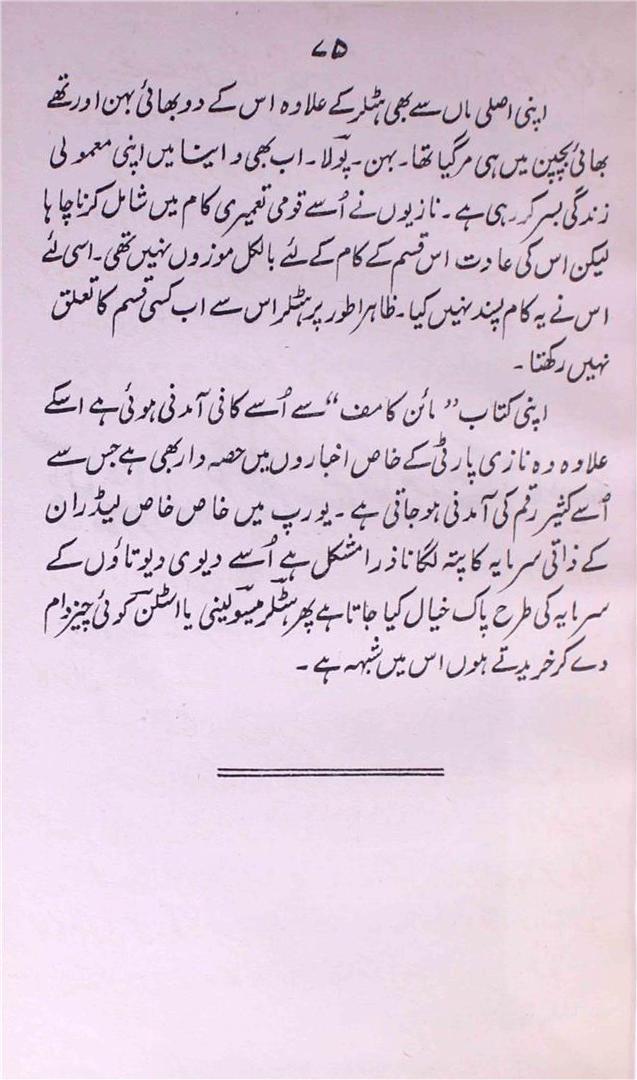 ۷۵
اپنی اصلی ماں سے بھی ہٹلر کے علاوہ اس کے دو بھائی بہن اور تھے
بھائی بچپن میں ہی مر گیا تھا۔ بہن۔ پولا۔ اب بھی واینا میں اپنی معمولی
زندگی بسر کر رہی ہے۔ نازیوں نے اُسے قومی تعمیری کام میں شامل کرنا چاہا
لیکن اس کی عادت اس قسم کے کام کے لئے بالکل موزوں نہیں تھی۔ اسی لئے
اس نے یہ کام پسند نہیں کیا۔ ظاہرا طور پر ہٹلر اس سے اب کسی قسم کا تعلق
نہیں رکھتا۔
اپنی کتاب "مائن کامف" سے اُسے کافی آمدنی ہوئی ہے اسکے
علاوہ وہ نازی پارٹی کے خاص اخباروں میں حصہ دار بھی ہے جس سے
اُسے کثیر رقم کی آمدنی ہو جاتی ہے۔ یورپ میں خاص خاص لیڈران
کے ذاتی سرمایہ کا پتہ لگانا ذرا مشکل ہے اُسے دیوی دیوتاؤں کے
سرمایہ کی طرح پاک خیال کیا جاتا ہے پھر ہٹلر میسولینی یا اسٹلن کوئی چیز دام
دے کر خریدتے ہوں اس میں شبہہ ہے۔